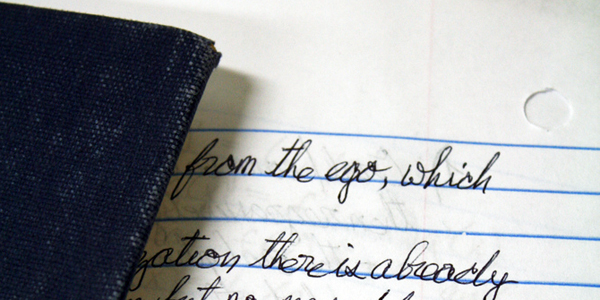 from the ego, which
zation there is already
but no